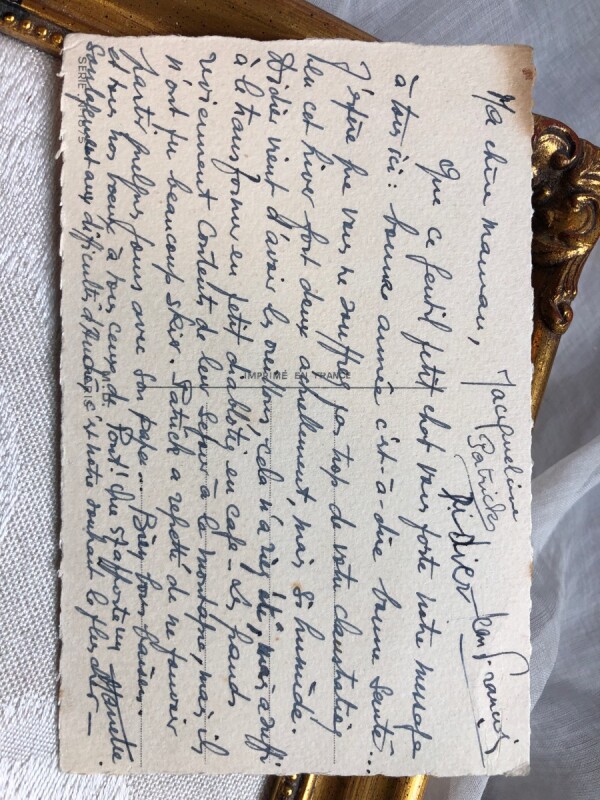 Ma chère maman,
Que ce gentil petit chat vous porte notre message
à tous ici : bonne année c'est-à-dire bonne santé...
J'espère que vous ne souffrez pas trop de votre
cet hiver fort doux actuellement, mais si humide.
Didier vient d'avoir les oreillons, cela n'a rien été, mais a suffi
à le transformer en petit diablotin en cage - Les grands
reviennent contents de leur séjour à la montagne, mais ils
n'ont pu beaucoup skier. Patrick a regretté de ne pouvoir
partir quelques jours avec son papa... Bien bons baisers
et tous nos vœux à tous ceux de Pont! Que apporte un
soulagement aux difficultés c'est notre souhait le plus cher -
Jacqueline
Patrick
Didier
Jean-François
IMPRIMÉ EN FRANCE
SERIE